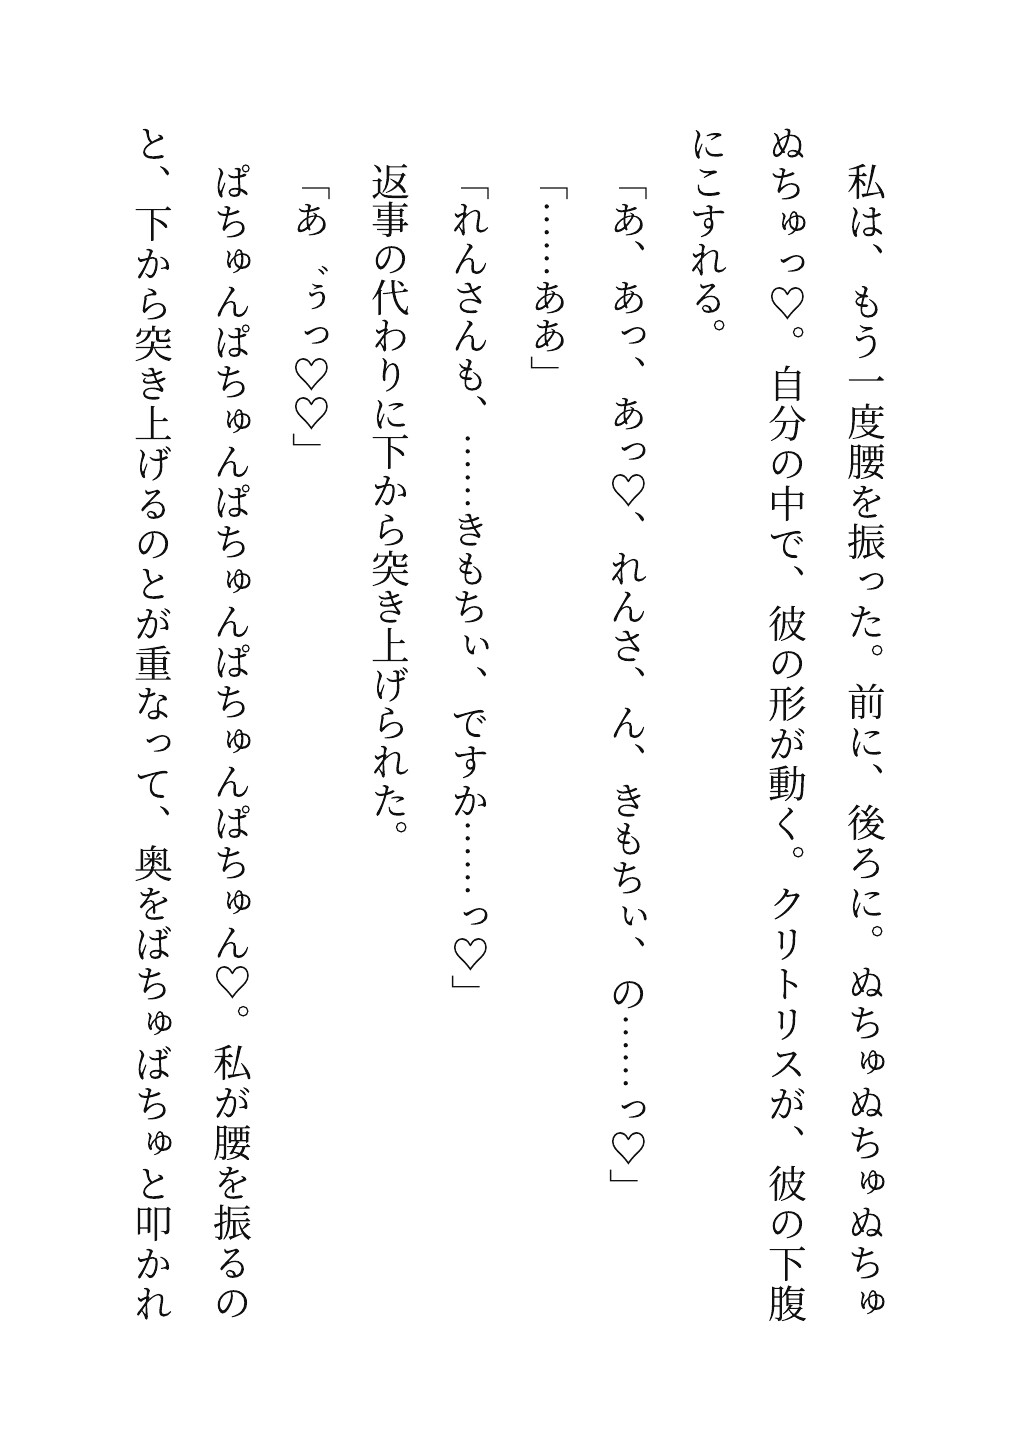 私は、もう一度腰を振った。前に、後ろに。ぬちゅぬちゅぬちゅ
ぬちゅっ♡。自分の中で、彼の形が動く。クリトリスが、彼の下腹
にこすれる。
「あ、あっ、あっ♡、れんさ、ん、きもちぃ、の……っ♡」
「……ああ」
「れんさんも、……きもちぃ、ですか……っ♡」
返事の代わりに下から突き上げられた。
「あ゛ぅっ♡♡」
ぱちゅんぱちゅんぱちゅんぱちゅんぱちゅん♡。私が腰を振るの
と、下から突き上げるのとが重なって、奥をばちゅばちゅと叩かれ